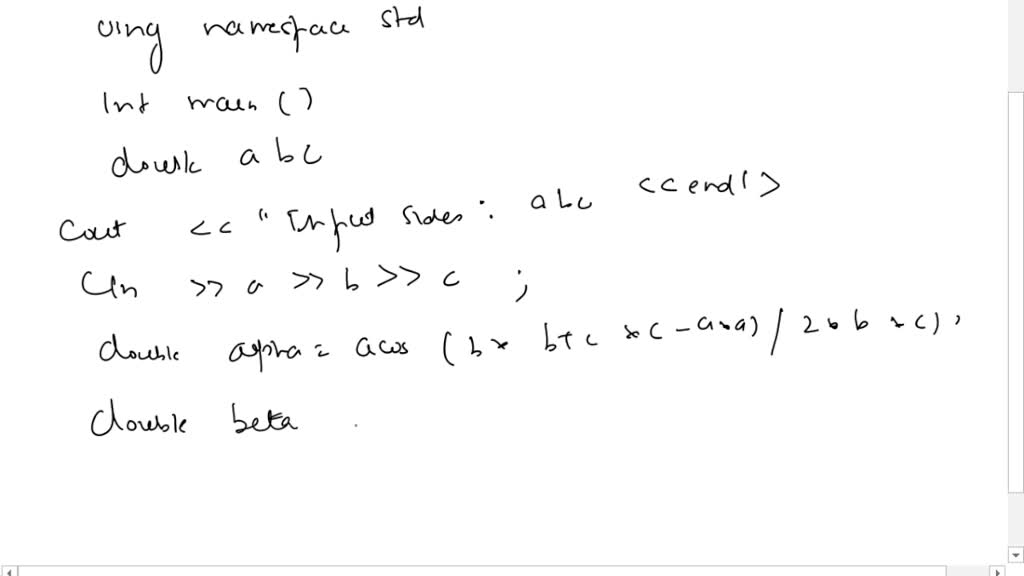 using namespace std
Int main ()
double a b c
Cout << " Input sides : a b c << endl >
Cin >> a >> b >> c ;
double alpha = acos ( b * b + c * c - a * a ) / 2 * b * c ) ,
double beta